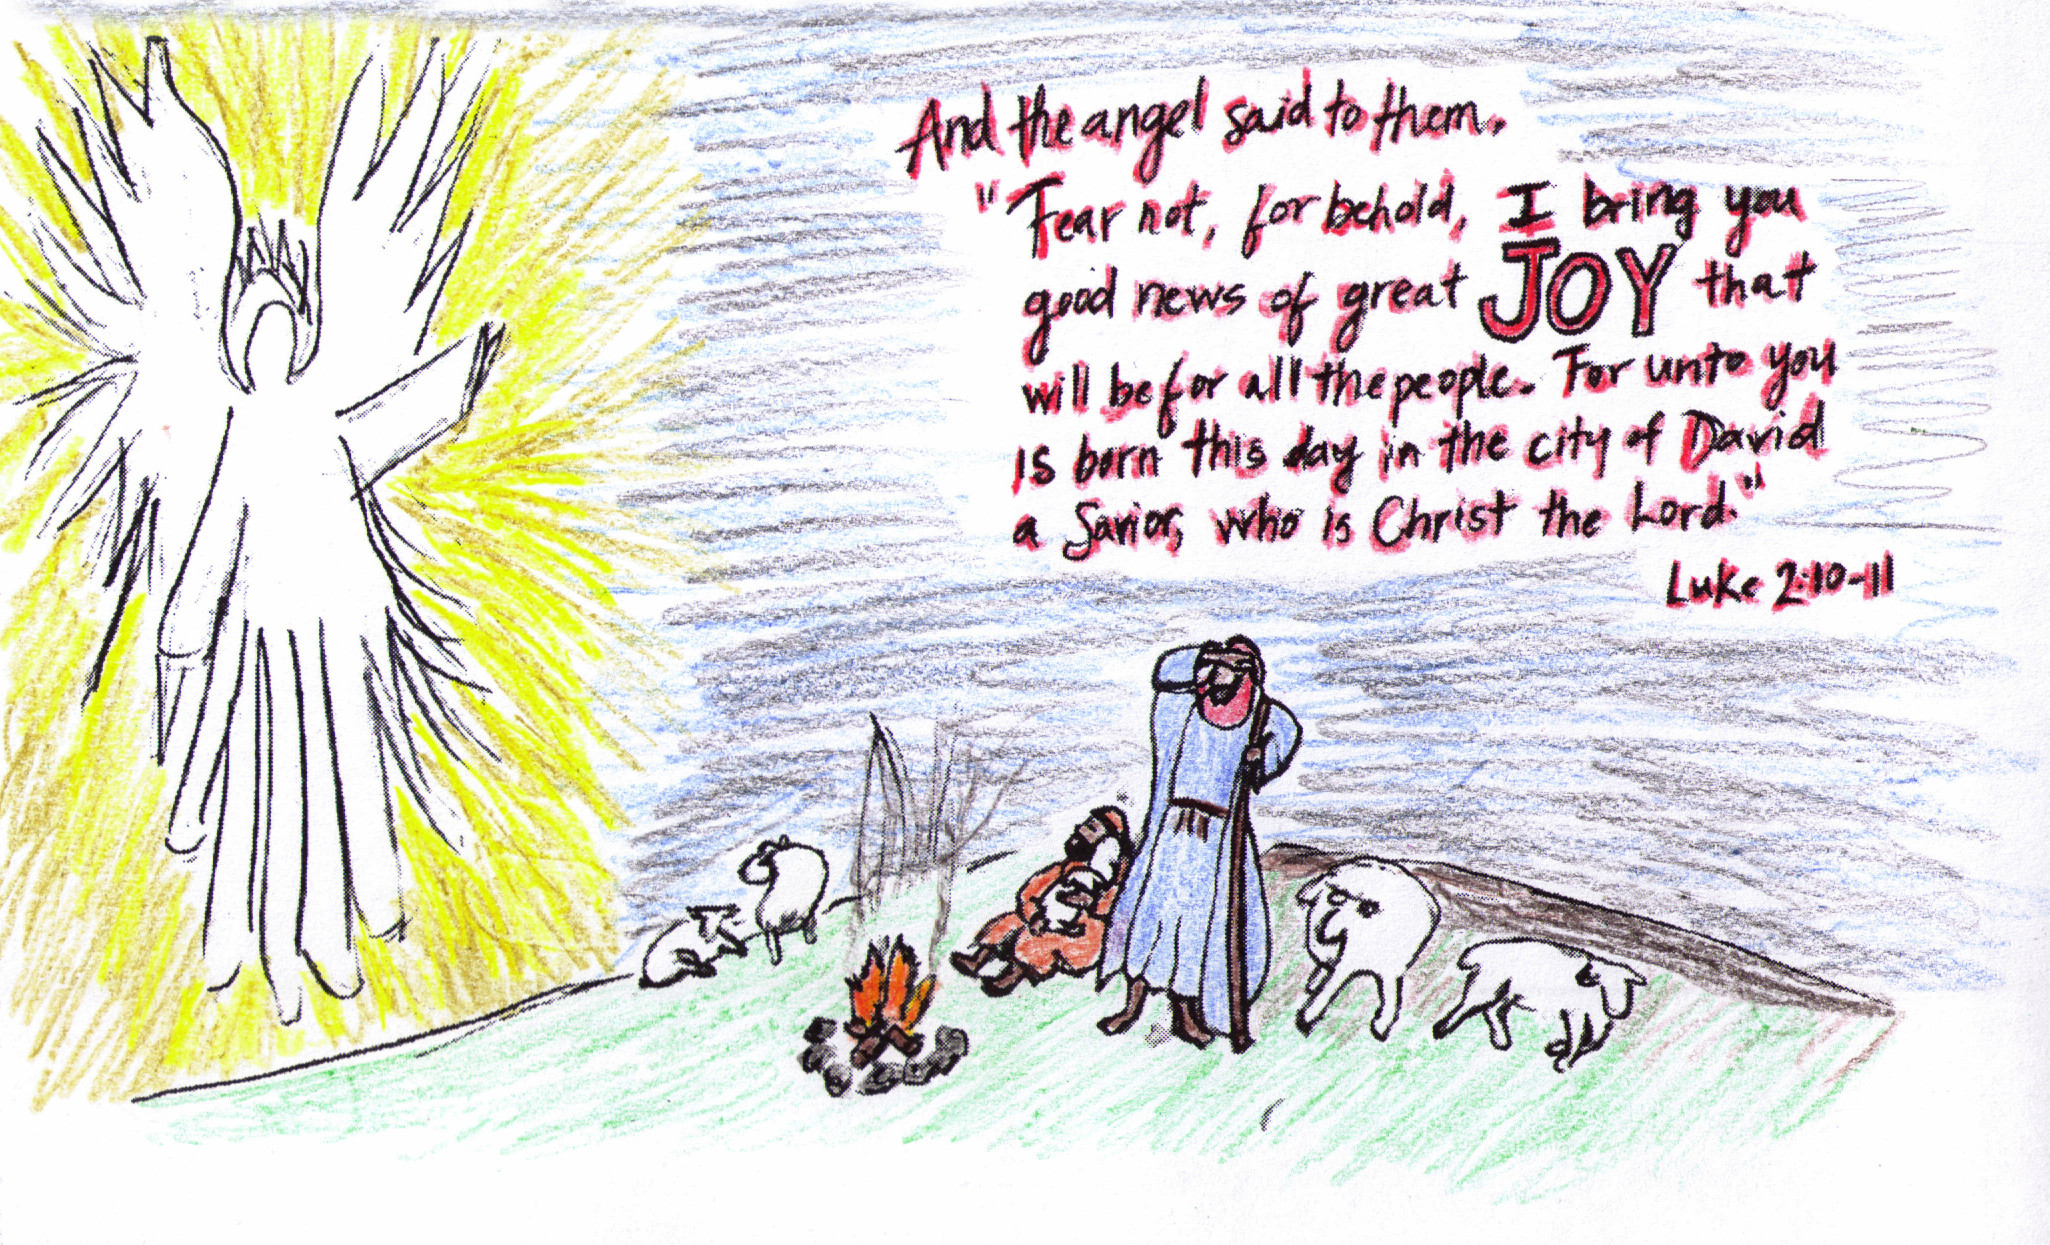 And the angel said to them.
"Fear not, for behold, I bring you
good news of great JOY that
will be for all the people. For unto you
is born this day in the city of David
a Savior, who is Christ the Lord."
Luke 2:10-11